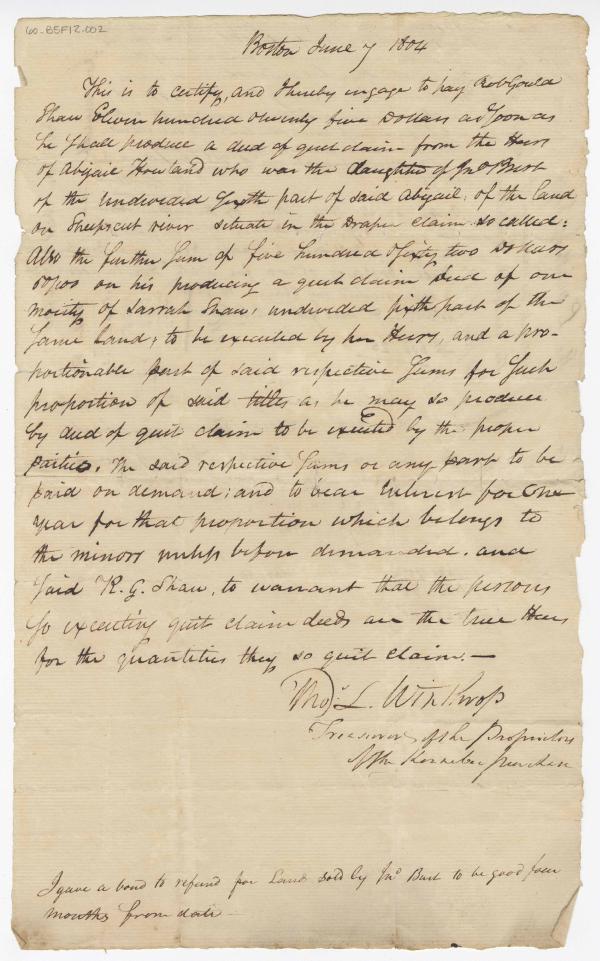 60-B5F12-002
Boston June 7 1804
This is to certify, and I hereby engage to pay Rob Gould
Shaw Eleven hundred & twenty five Dollars as soon as
he shall produce a deed of quit claim from the Heirs
of Abigail Howland who was the daughter of Jno Burt
of the undivided sixth part of said Abigail, of the land
on Sheepscut river situate in the Draper claim so called:
Also the further sum of five hundred & sixty two Dollars
50/100 on his producing a quit claim Deed of one
moiety of Sarrah Shaws undivided sixth part of the
same land; to be executed by her Heirs, and a pro-
portionable part of said respective sums for such
proportion of said titles as he may so produce
by deed of quit claim to be executed by the proper
parties. The said respective sums or any part to be
paid on demand; and to bear interest for One
year for that proportion which belongs to
the minors unless before demanded. and
said R. G. Shaw, to warrant that the persons
so executing quit claim deeds are the true Heirs
for the quantities they so quit claim. —
Thos. L. Winthrop
Treasurer of the Proprietors
of the Kennebec purchase
I gave a bond to refund for Land sold by Jno Burt to be good four
months from date —